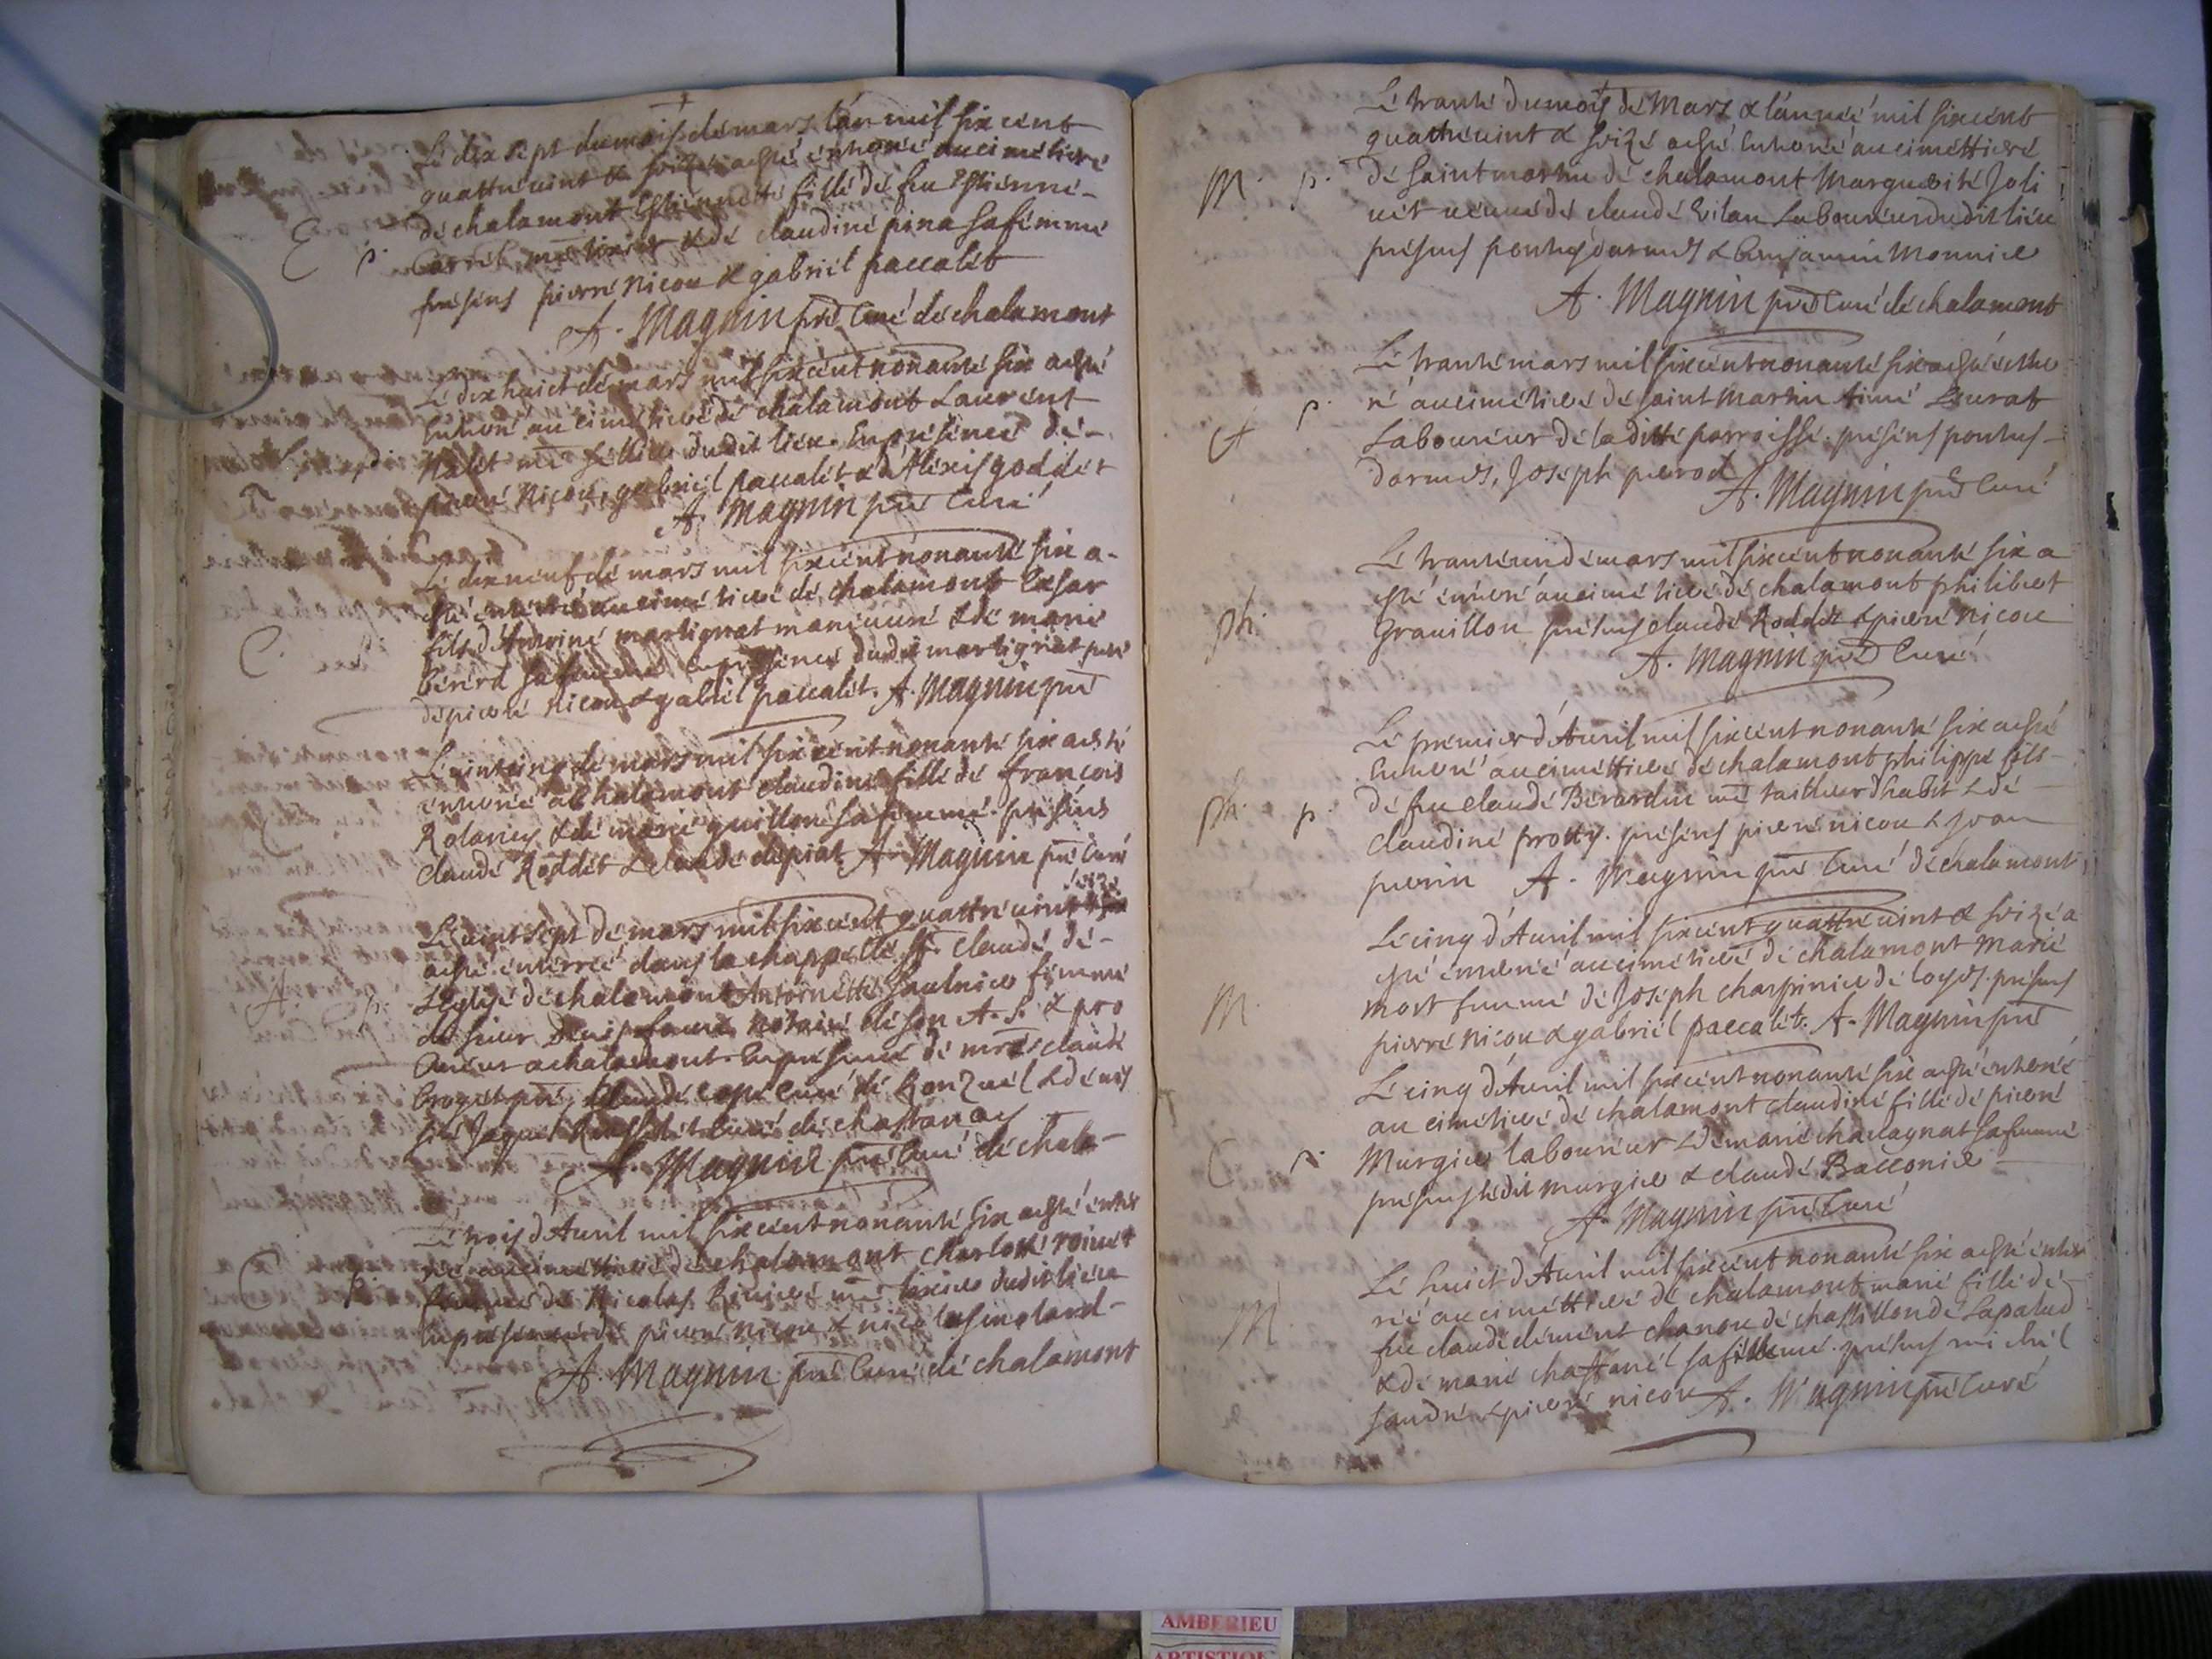 Le dix sept du mois de mars l'an mil six cent
quattre vint & seize a esté enterré au cimetiere
de chalamont Estiennette fille de feu Estienne
E p. me tixier & de claudine pina sa femme
presens pierre Nicou & gabriel paccalet
A. Magnin pre Curé de chalamont
Le dix huict de mars mil six cent nonante six a esté
Enterré au cimetiere de chalamont Laurent
me sellier dudit lieu. En presence de
pierre Nicou, gabriel paccalet & d'Alexis goddet
A. Magnin pre Curé
Le dix neuf de mars mil six cent nonante six a
esté enterré au cimetiere de chalamont Cesar
C. fils d'Antoine martignat & de marie
berérd sa femme En presence dudit martignat pere
de pierre nicou & gabriel paccalet. A. Magnin pre
Le vint cinq de mars mil six cent nonante six a esté
enterré a Chalamont claudine fille de francois
Rolancy & de marie guillon sa femme. presens
claude Roddet & claude depiat A. Magnin pre Curé
seize
Le vint sept de mars mil six cent quattre vint
a esté enterrée dans la chappelle St claude de
A p. L'eglise de chalamont Antoinette saulnier femme
du sieur Denis faure notaire de son A. S. & pro
cureur a chalamont. En presence de claude
pre, Claude curé de Ronzuel & de
Jaque curé de chastanay
A. Magnin pre Curé de chala-
Le trois d'Auril mil six cent nonante six a esté enter
ré au cimettiere de chalamont charlotte
C p. femme de Nicolas Riviere me tixier dudit lieu
En presence de pierre nicou & nicolas
A. Magnin pre Curé de chalamont
Le trante du mois de Mars & l'année mil six cent
quattre vint & seize a esté Enterré au cimettiere
M. p. de saint martin de chalamont Marguerite Joli
uet veuue de claude vilan Laboureur dudit lieu
presens pontus darmes & benjamin Monnier
A. Magnin pre Curé de chalamont
Le trante mars mil six cent nonante six a esté enter
ré au cimetiere de saint martin aimé Leurat
A p. Laboureur de la ditte parroisse. presens pontus
darmes, Joseph pierod
A. Magnin pre Curé
Le trante un de mars mil six cent nonante six a
esté enterré au cimetiere de chalamont philibert
ph. Grauillon presens claude Roddet & pierre nicou
A. Magnin pre Curé
Le premier d'Auril mil six cent nonante six a esté
Enterré au cimettiere de chalamont philippe fils
ph. p. de feu claude Berardin me tailleur d'habit & de
claudine prost. presens pierre nicou & Jean
perrin A. Magnin pre Curé de chalamont
Le cinq d'Auril mil six cent quattre vint & seize a
esté enterré au cimetiere de chalamont Marie
M. mort femme de Joseph charpinier de loyes. presens
pierre nicou & gabriel paccalet. A. Magnin pre
Le cinq d'Auril mil six cent nonante six a esté enterré
au cimetiere de chalamont claudine fille de pierre
C p. Murgier laboureur & de marie chauagnat sa femme
presens ledit murgier & claude Bacconier
A. Magnin pre Curé
Le huict d'Auril mil six cent nonante six a esté enter
rée au cimettiere de chalamont marie fille de
M. feu claude clément chanou de chastillon de Lapalud
& de marie chastanel sa femme. presens michel
& pierre nicou A. Magnin pre Curé
AMBERIEU